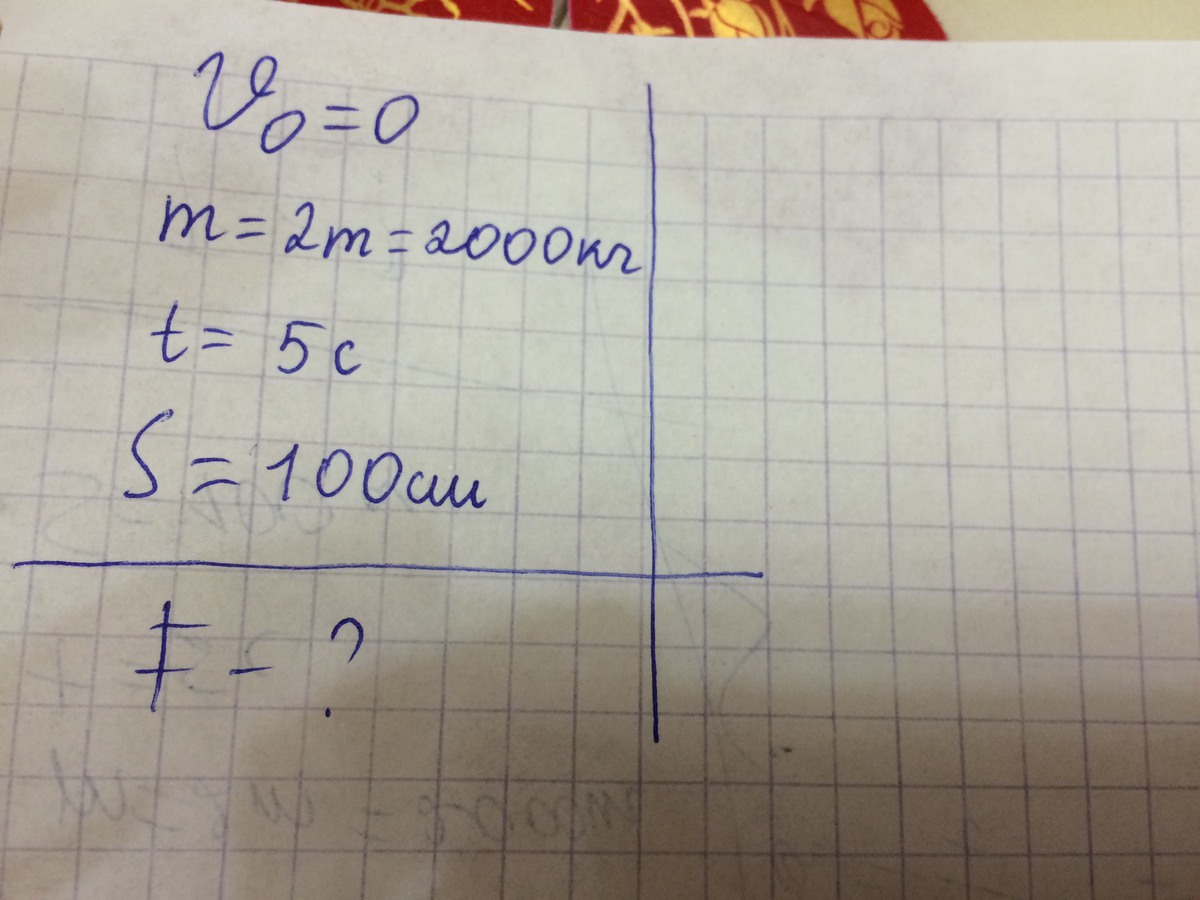 V₀ = 0
m = 2т = 2000кг
t = 5 с
S = 100см
F - ?